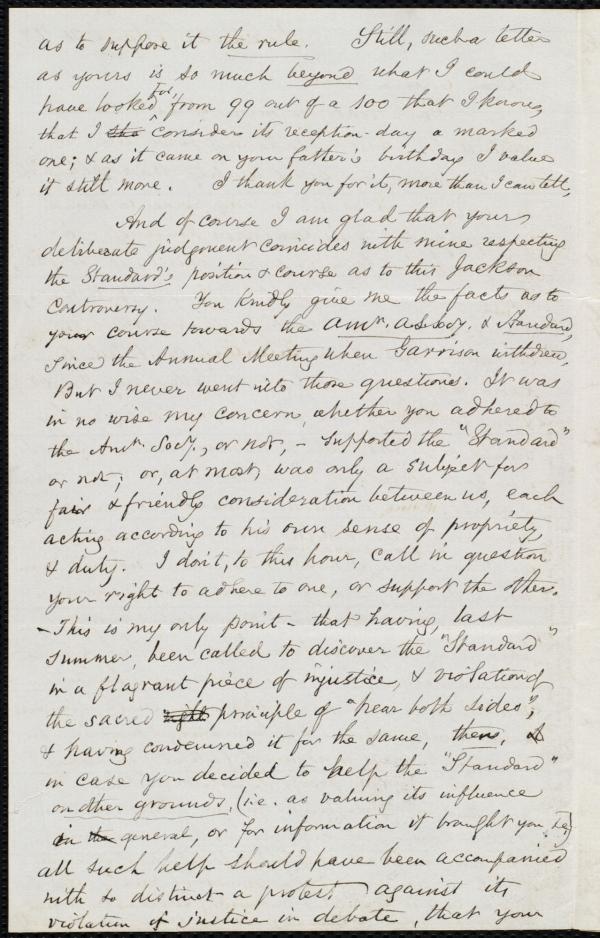 as to suppose it the rule. Still, such a letter
as yours is so much beyond what I could
have looked for, from 99 out of a 100 that I know,
that I consider its reception-day a marked
one; & as it came on your father's birthday I value
it still more. I thank you for it, more than I can tell,
And of course I am glad that your
deliberate judgment coincides with mine respecting
the Standard's position & course as to this Jackson
Controversy. You kindly give me the facts as to
your course towards the Amn. A.S.Socy. & Standard,
since the Annual Meeting when Garrison withdrew,
But I never went into those questions. It was
in no wise my concern, whether you adhered to
the Amn. Socy., or not, - supported the "Standard"
or not; or, at most, was only a subject for
fair & friendly consideration between us, each
acting according to his own sense of propriety
& duty. I don't, to this hour, call in question
your right to adhere to one, or support the other.
- This is my only point - that having, last
summer, been called to discover the "Standard"
in a flagrant piece of injustice, & violation of
the sacred right principle of "hear both sides",
& having condemned it for the same, then, &
in case you decided to help the "Standard"
on other grounds, (i.e. as valuing its influence
in the general, or for information it brought you, &c)
all such help should have been accompanied
with so distinct a protest against its
violation of justice in debate, that your